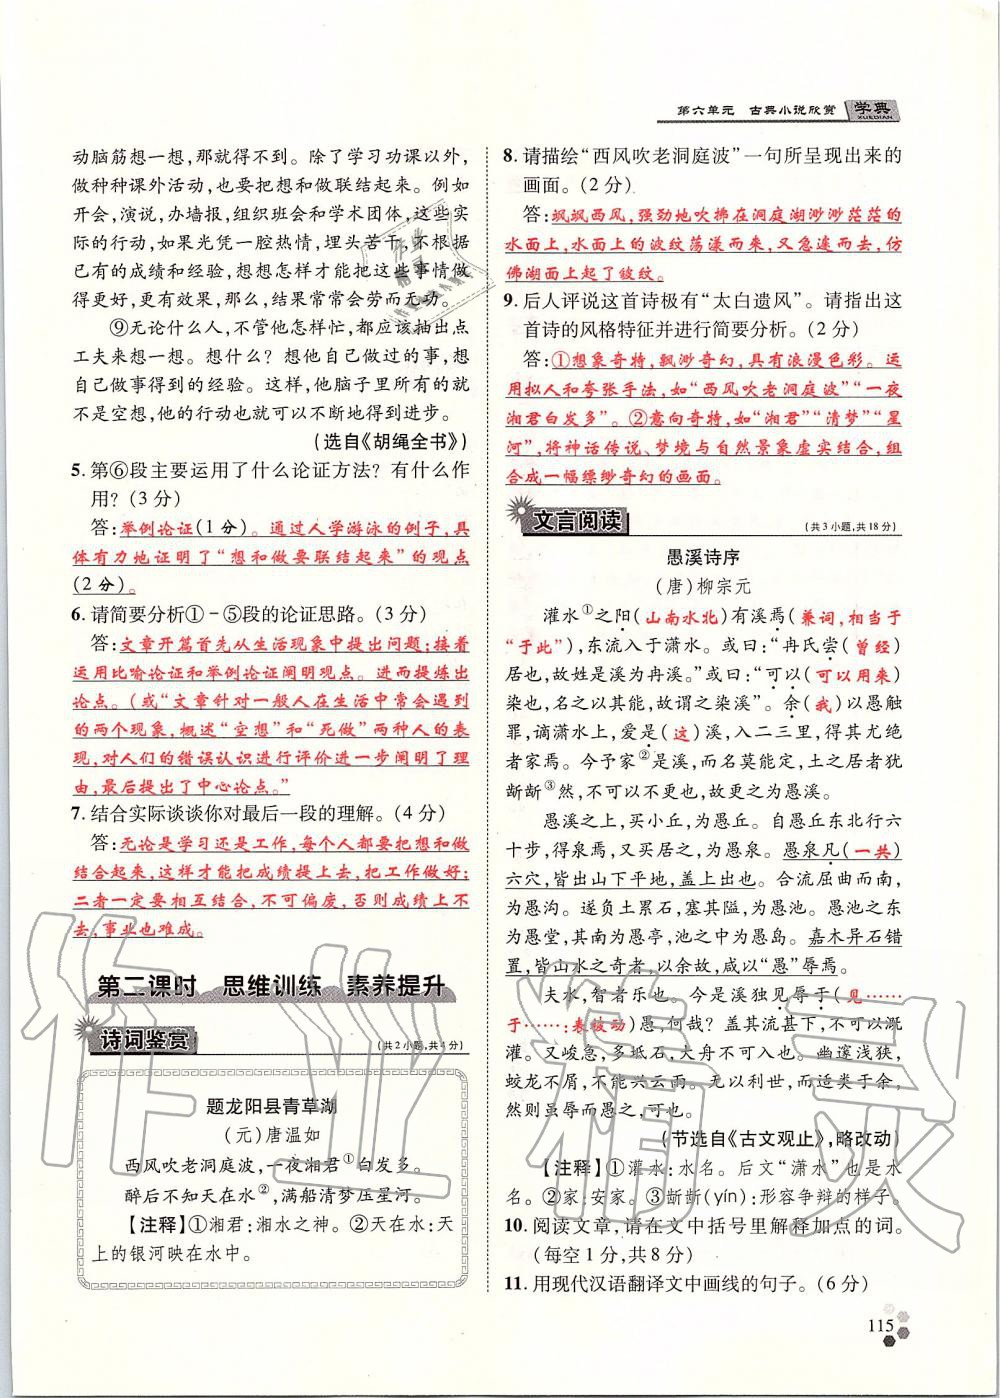 第六单元 古典小说欣赏 学典
XUEDIAN
动脑筋想一想,那就得不到。除了学习功课以外,
做种种课外活动,也要把想和做联结起来。例如
开会,演说,办墙报,组织班会和学术团体,这些实
际的行动,如果光凭一腔热情,埋头苦干,不根据
已有的成绩和经验,想想怎样才能把这些事情做
得更好,更有效果,那么,结果常常会劳而无功。
⑨无论什么人,不管他怎样忙,都应该抽出点
工夫来想一想。想什么?想自己做过的事,想自
己做事得到的经验。这样,他脑子里所有的就
不是空想,他的行动也就可以不断地得到进步。
(选自《胡绳全书》)
5. 第⑥段主要运用了什么论证方法?有什么作
用?(3分)
答:举例论证(1分)。通过人学游泳的例子,具
体有力地证明了“想和做要联结起来”的观点
(2分)。
6. 请简要分析①-⑤段的论证思路。(3分)
答:文章开篇首先从生活现象中提出问题;接着
运用比喻论证和举例论证阐明观点。进而提炼出
论点。(或“文章针对一般人在生活中常会遇到
的两个现象,概述“空想”和“死做”两种人的表
现,对人们的错误认识进行评价进一步阐明了理
由,最后提出了中心论点。”
7. 结合实际谈谈你对最后一段的理解。(4分)
答:无论是学习还是工作,每个人都要把想和做
结合起来,这样才能把成绩提上去,把工作做好;
二者一定要相互结合,不可偏废,否则成绩上不
去,事业也难成。
第二课时 思维训练 素养提升
诗词鉴赏 (共2小题,共4分)
题龙阳县青草湖
(元)唐温如
西风吹老洞庭波,一夜湘君①白发多。
醉后不知天在水②,满船清梦压星河。
【注释】①湘君:湘水之神。②天在水:天
上的银河映在水中。
8. 请描绘“西风吹老洞庭波”一句所呈现出来的
画面。(2分)
答:飒飒西风,强劲地吹拂在洞庭湖渺渺茫茫的
水面上,水面上的波纹荡漾而来,又急速而去,仿
佛湖面上起了皱纹。
9. 后人评说这首诗极有“太白遗风”。请指出这
首诗的风格特征并进行简要分析。(2分)
答:①想象奇特,飘渺奇幻,具有浪漫色彩。运
用拟人和夸张手法,如“西风吹老洞庭波”“一夜
湘君白发多”。②意向奇特,如“湘君”“清梦”“星
河”,将神话传说、梦境与自然景象虚实结合,组
合成一幅缥缈奇幻的画面。
文言阅读 (共3小题,共18分)
愚溪诗序
(唐)柳宗元
灌水①之阳(山南水北)有溪焉(兼词,相当于
“于此”),东流入于潇水。或曰:“冉氏尝(曾经)
居也,故姓是溪为冉溪。”或曰:“可以(可以用来)
染也,名之以其能,故谓之染溪”。余(我)以愚触
罪,谪潇水上,爱是(这)溪,入二三里,得其尤绝
者家焉。今予家②是溪,而名莫能定,土之居者犹
龂龂③然,不可以不更也,故更之为愚溪。
愚溪之上,买小丘,为愚丘。自愚丘东北行六
十步,得泉焉,又买居之,为愚泉。愚泉凡(一共)
六穴,皆出山下平地,盖上出也。合流屈曲而南,
为愚沟。遂负土累石,塞其隘,为愚池。愚池之东
为愚堂,其南为愚亭,池之中为愚岛。嘉木异石错
置,皆山水之奇者,以余故,咸以“愚”辱焉。
夫水,智者乐也。今是溪独见辱于(见……
于……:表被动)愚,何哉?盖其流甚下,不可以溉
灌。又峻急,多坻石,大舟不可入也。幽邃浅狭,
蛟龙不屑,不能兴云雨。无以利世,而适类于余,
然则虽辱而愚之,可也。
(节选自《古文观止》,略改动)
【注释】①灌水:水名。后文“潇水”也是水
名。②家:安家。③龂龂(yín):形容争辩的样子。
10. 阅读文章,请在文中括号里解释加点的词。
(每空1分,共8分)
11. 用现代汉语翻译文中画线的句子。(6分)
115
作业精灵